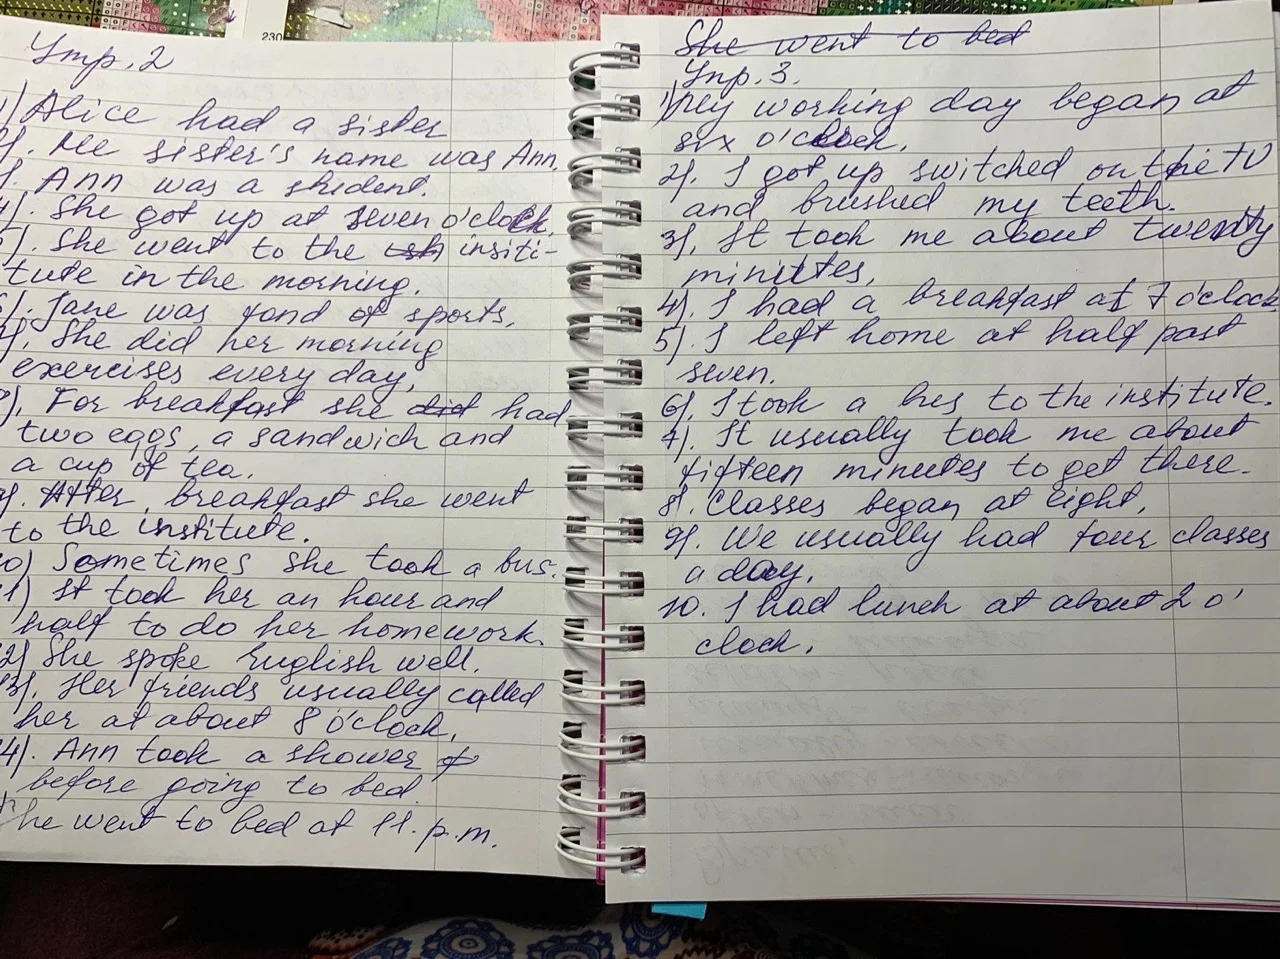 230
Упр. 2
1) Alice had a sister
2). Ale sister's name was Ann.
). Ann was a student.
4). She got up at seven o'clock.
5). She went to the insiti-
tute in the morning.
6). Jane was fond of sports.
7). She did her morning
exercises every day.
8). For breakfast she did had
two eggs, a sandwich and
a cup of tea.
9). After breakfast she went
to the institute.
10) Sometimes she took a bus.
11) It took her an hour and
half to do her homework.
12) She spoke English well.
13). Her friends usually called
her at about 8 o'clock.
14). Ann took a shower
before going to bed.
She went to bed at 11. p.m.
She went to bed
Упр. 3.
1) My working day began at
six o'clock.
2). I got up switched on the TV
and brushed my teeth.
3). It took me about twenty
minutes.
4). I had a breakfast at 7 o'clock.
5). I left home at half past
seven.
6). I took a bus to the institute.
7). It usually took me about
fifteen minutes to get there.
8). Classes began at eight.
9). We usually had four classes
a day.
10. I had lunch at about 2 o'
clock.